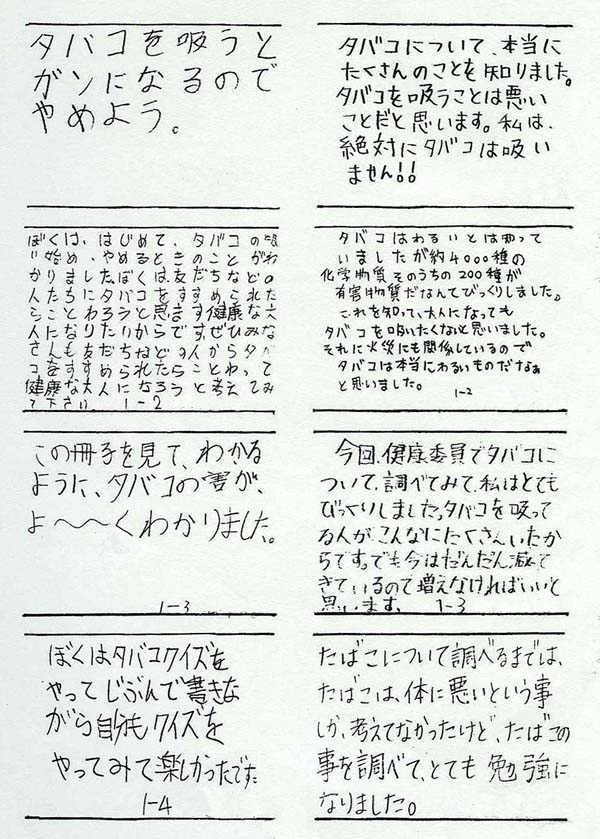 タバコを吸うと
ガンになるので
やめよう。
タバコについて、本当に
たくさんのことを知りました。
タバコを吸うことは悪い
ことだと思います。私は、
絶対にタバコは吸い
ません!!
ぼくは、はじめて、タバコの吸
い始め、やめるときのことがわ
かりました。ぼくは友だちなどの
人たちにタバコをすすめられた
らことわろうと思います。健康な大
人になりたいからです。ぜひみな
さんも友だちなどの人からタバ
コをすすめられたらことわって
健康な大人になろうと考えてみ
て下さい。 1-2
タバコはわるいとは知って
いましたが約4000種の
化学物質そのうちの200種が
有害物質だなんてびっくりしました。
これを知って、大人になっても
タバコを吸いたくないと思いました。
それに火災にも関係しているので
タバコは本当にわるいものだなぁ
と思いました。 1-2
この冊子を見て、わかる
ように、タバコの害が、
よ〜〜くわかりました。
1-3
今回、健康委員でタバコに
ついて、調べてみて、私はとても
びっくりしました。タバコを吸って
る人が、こんなにたくさんいたか
らです。でも今はだんだん減って
きているので増えなければいいと
思います。 1-3
ぼくはタバコクイズを
やってじぶんで書きな
がら自分もクイズを
やってみて楽しかったです。
1-4
たばこについて調べるまでは、
たばこは、体に悪いという事
しか、考えてなかったけど、たばこの
事を調べて、とても勉強に
なりました。